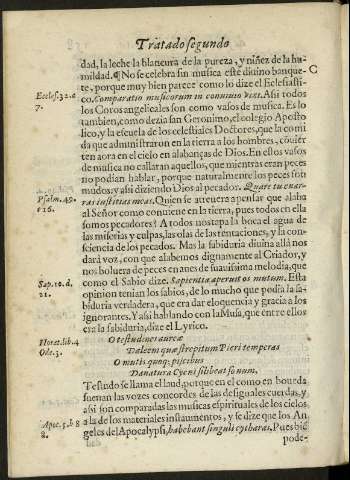 Tratado segundo
dad, la leche la blancura de la pureza, y niñez de la hu-
mildad. ¶ No se celebra sin musica este diuino banque- C
te, porque muy bien parece como lo dize el Eclesiasti-
Eccles. 32. a
co. Comparatio musicorum in conuiuio vini. Asi todos
7.
los Coros angelicales son como vasos de musica. Es lo
tambien, como dezia san Geronimo, el colegio Aposto
lico, y la escuela de los celestiales Doctores, que la comi
da que administraron en la tierra a los hombres, cõuier
ten aora en el cielo en alabanças de Dios. En estos vasos
de musica no callaran aquellos, que mientras eran peces
no podian hablar, porque naturalmente los peces son
mudos: y asi diziendo Dios al pecador. Quare tu enar-
Psalm. 49.
ras iustitias meas. Quien se atreuera a pensar que alaba
16.
al Señor como conuiene en la tierra, pues todos en ella
somos pecadores? A todos nos tapa la boca el agua de
las miserias y culpas, las olas de las tentaciones, y la con-
sciencia de los pecados. Mas la sabiduria diuina allà nos
darà voz, con que alabemos dignamente al Criador, y
nos boluera de peces en aues de suauisima melodia, que
Sap. 10. d.
como el Sabio dize. Sapientia aperuit os mutum. Esta
21.
opinion tenian los sabios, de lo mucho que podia la sa-
biduria verdadera, que era dar eloquencia y gracia a los
ignorantes. Y asi hablando con la Musa, que entre ellos
era la sabiduria, dize el Lyrico.
Horat. lib. 4
O testudinis aureæ
Ode. 3.
Dulcem quæ strepitum Pieri temperas
O mutis quoq; piscibus
Donatura Cycni si libeat sonum.
Testudo se llama el laud, porque en el como en boueda
suenan las vozes concordes de las desiguales cuerdas, y
asi son comparadas las musicas espirituales de los cielos
a la de los materiales instrumentos, y se dize que los An
Apoc. 5. b 8
geles del Apocalypsi, habebant singuli cytharas. Pues biẽ
8.
pode-